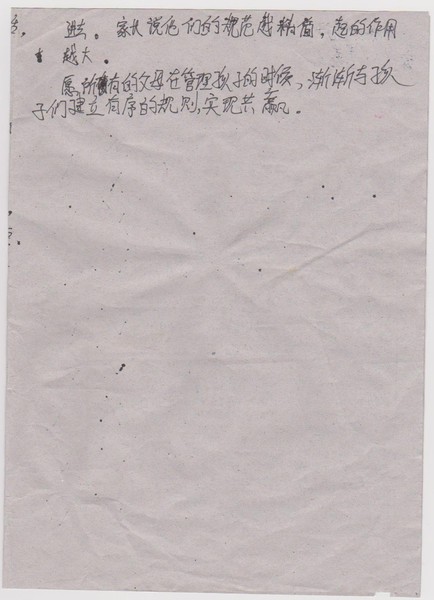 进去。家长说他们的规范越精简,起的作用
越大。
愿所有的父母在管理孩子的时候,渐渐与孩
子们建立有序的规则,实现共赢。